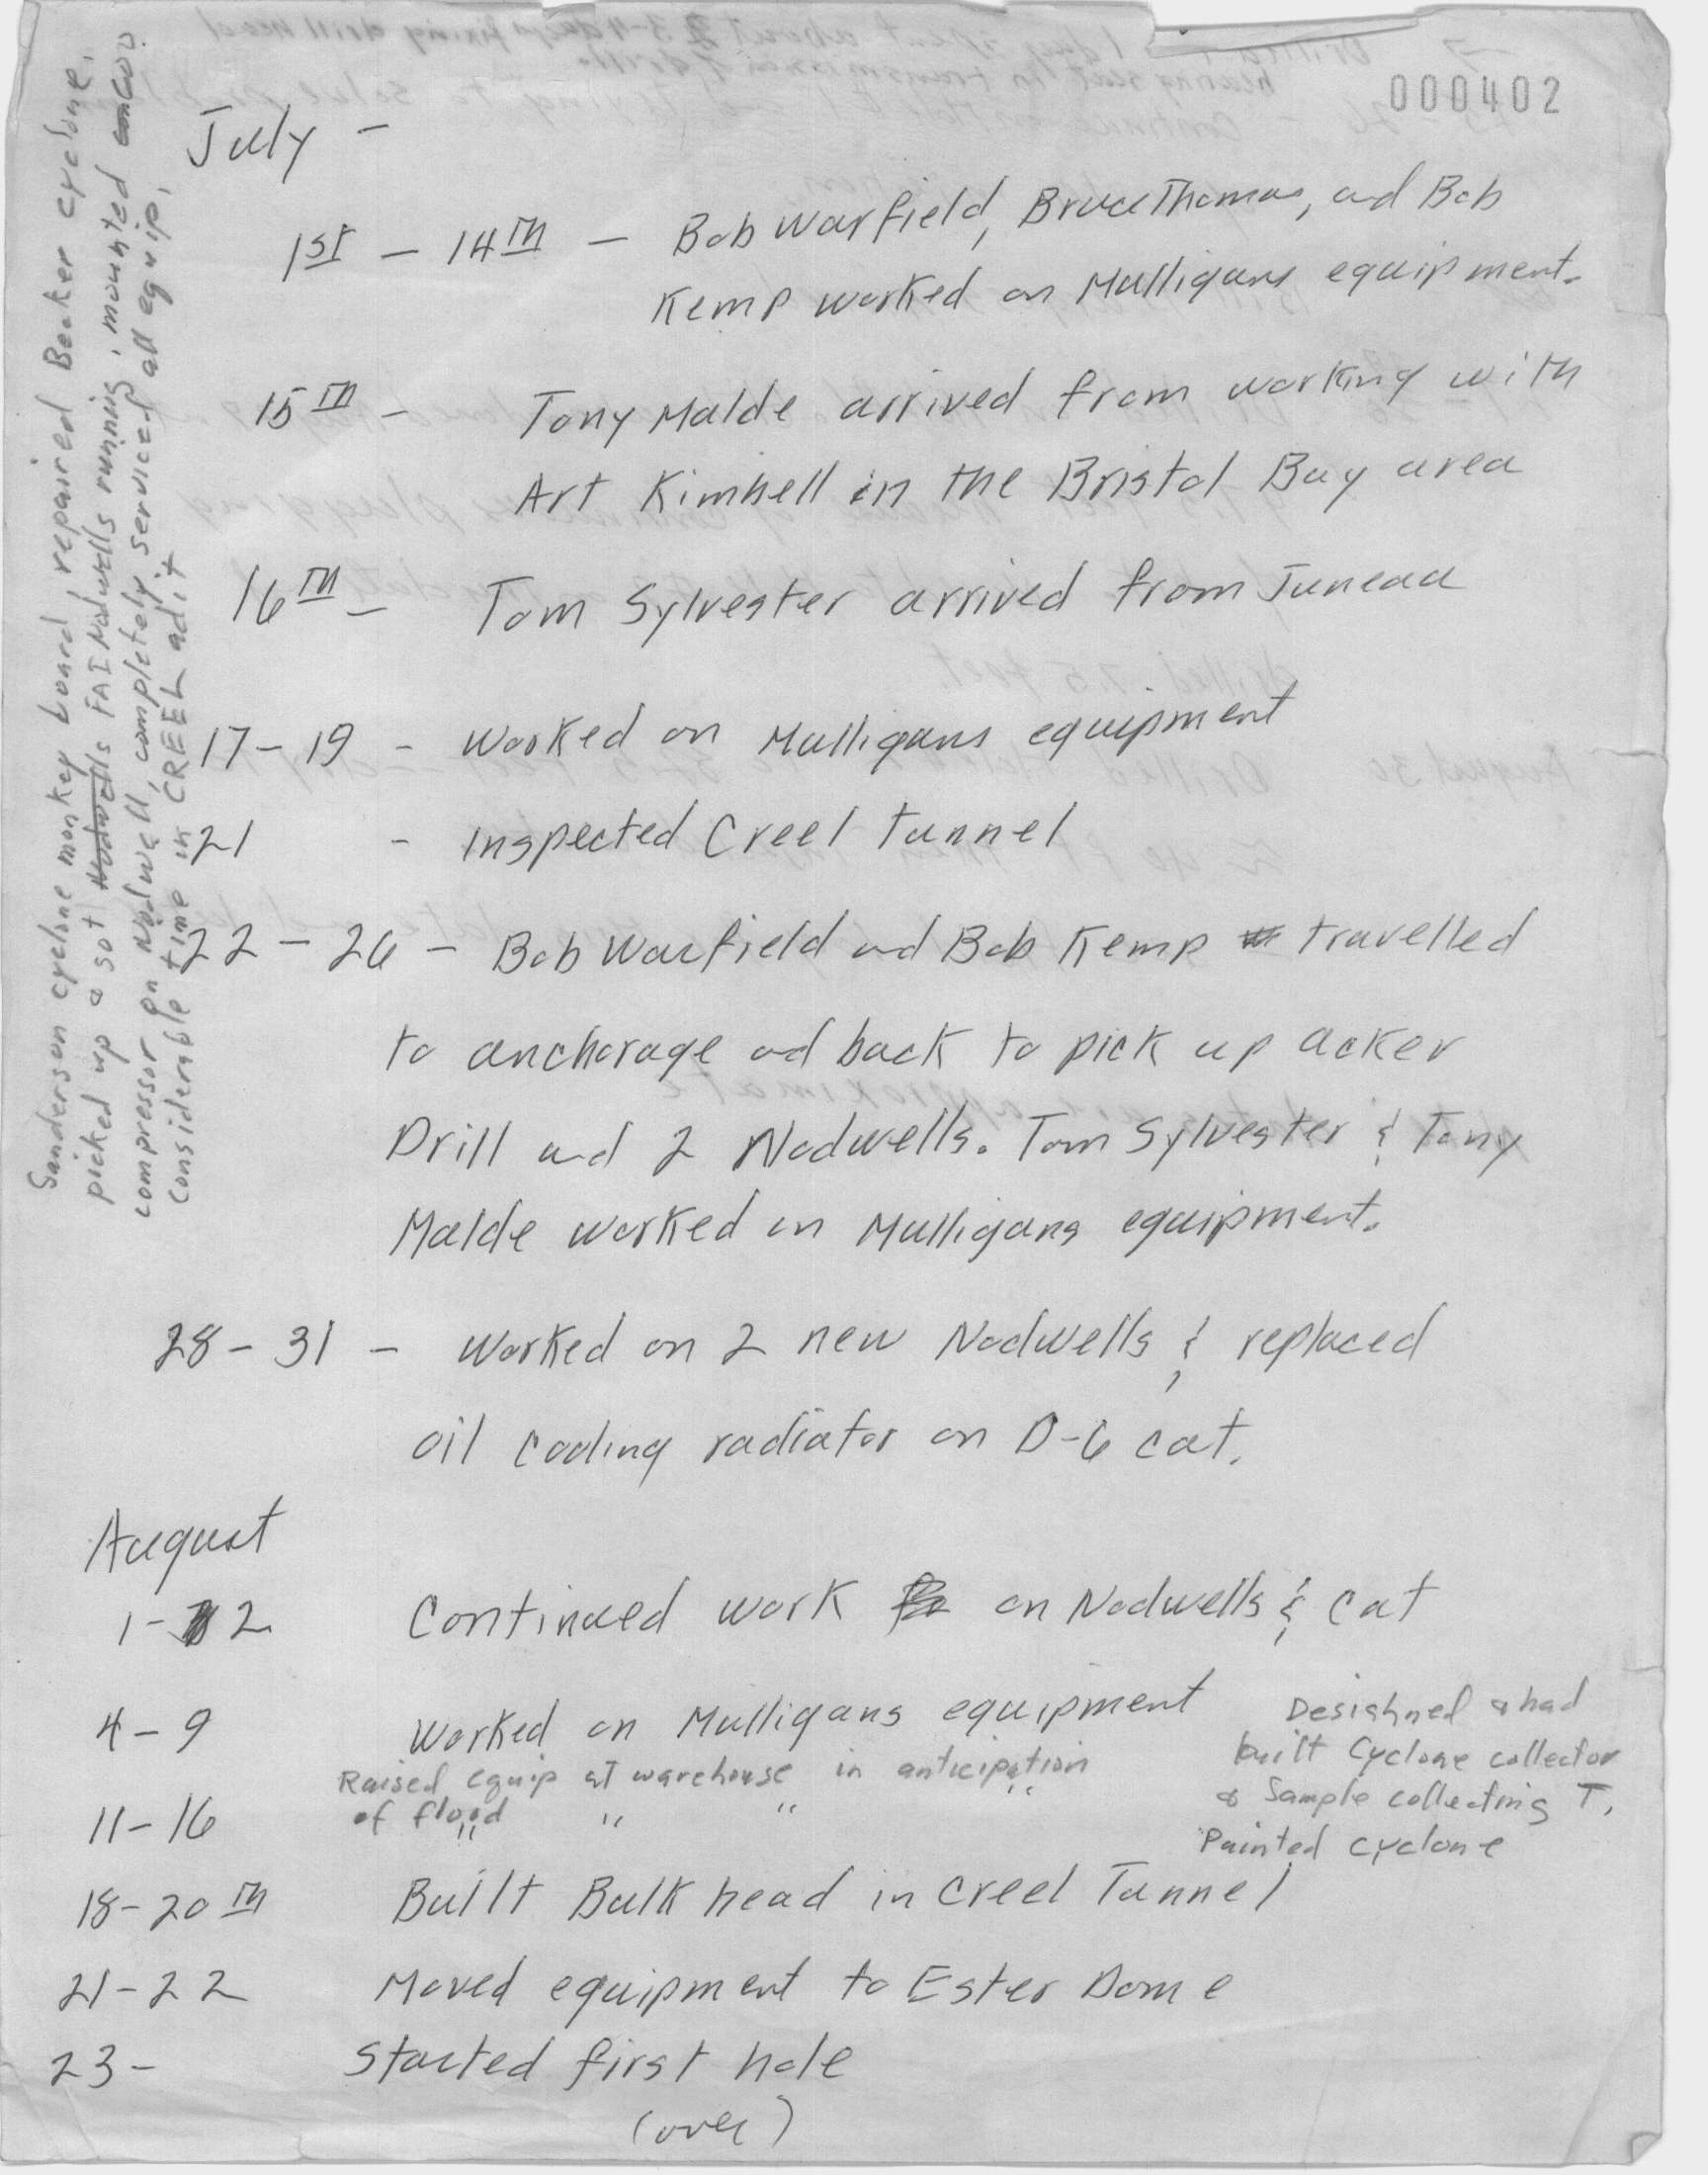 000402
July -
1st - 14th - Bob Warfield, Bruce Thomas, and Bob
Kemp worked on Mulligans equipment.
15th - Tony Malde arrived from working with
Art Kimbell in the Bristol Bay area
16th - Tom Sylvester arrived from Juneau
17 - 19 - Worked on Mulligans equipment
21 - Inspected Creel tunnel
22 - 26 - Bob Warfield and Bob Kemp travelled
to anchorage and back to pick up acker
Drill and 2 Nodwells. Tom Sylvester & Tony
Malde worked on Mulligans equipment.
28 - 31 - Worked on 2 new Nodwells & replaced
oil cooling radiator on D-6 cat.
August
1 - 2 Continued work on Nodwells & cat
4 - 9 Worked on Mulligans equipment
Raised equip at warehouse in anticipation
of flood
11 - 16 " " " "
Desighned & had
built Cyclone collector
& Sample collecting T,
Painted cyclone
18 - 20th Built Bulkhead in Creel Tunnel
21 - 22 Moved equipment to Ester Dome
23 - Started first hole
(over)
Sanderson cyclone monkey board, repaired Becker cyclone,
picked up a SOT Nodwells FAI Nodwells running, mounted
compressor on Nodwell, completely serviced all equip,
Considerable time in CREEL adit